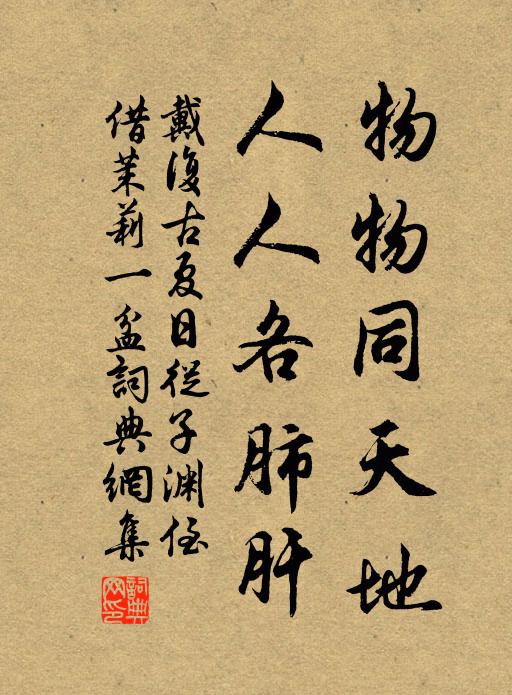 物物同天地
人人各肺肝
戴復古夏日從子淵侄
借茉莉一盆詞典網集
詞典网印